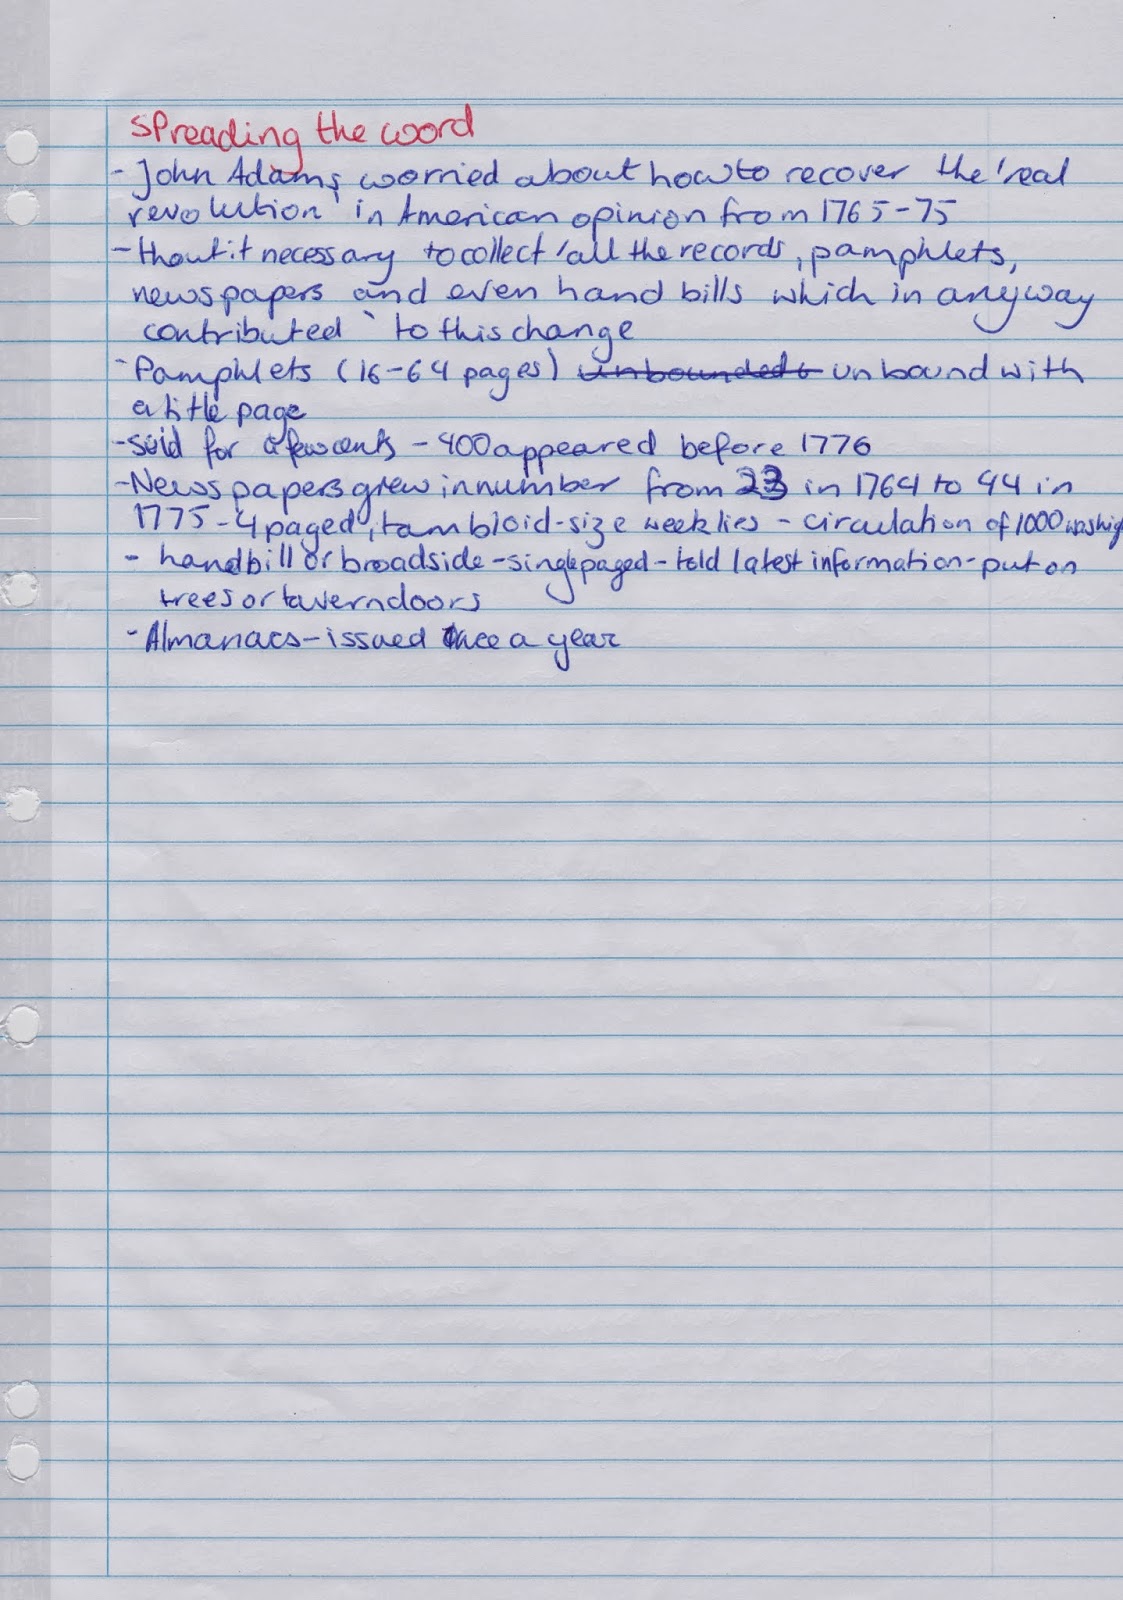 Spreading the word
- John Adams worried about how to recover the 'real
revolution' in American opinion from 1765-75
- thout it necessary to collect 'all the records, pamphlets,
newspapers and even hand bills which in anyway
contributed' to this change
- Pamphlets (16-64 pages) unbounded unbound with
a title page
- sold for a few cents - 400 appeared before 1776
- Newspapers grew in number from 23 in 1764 to 44 in
1775 - 4 paged, tambloid-size weeklies - circulation of 1000
- handbill or broadside - single paged - told latest information - put on
trees or tavern doors
- Almanacs - issued a year